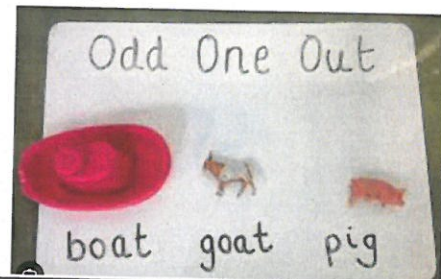 Odd One Out
boat goat pig